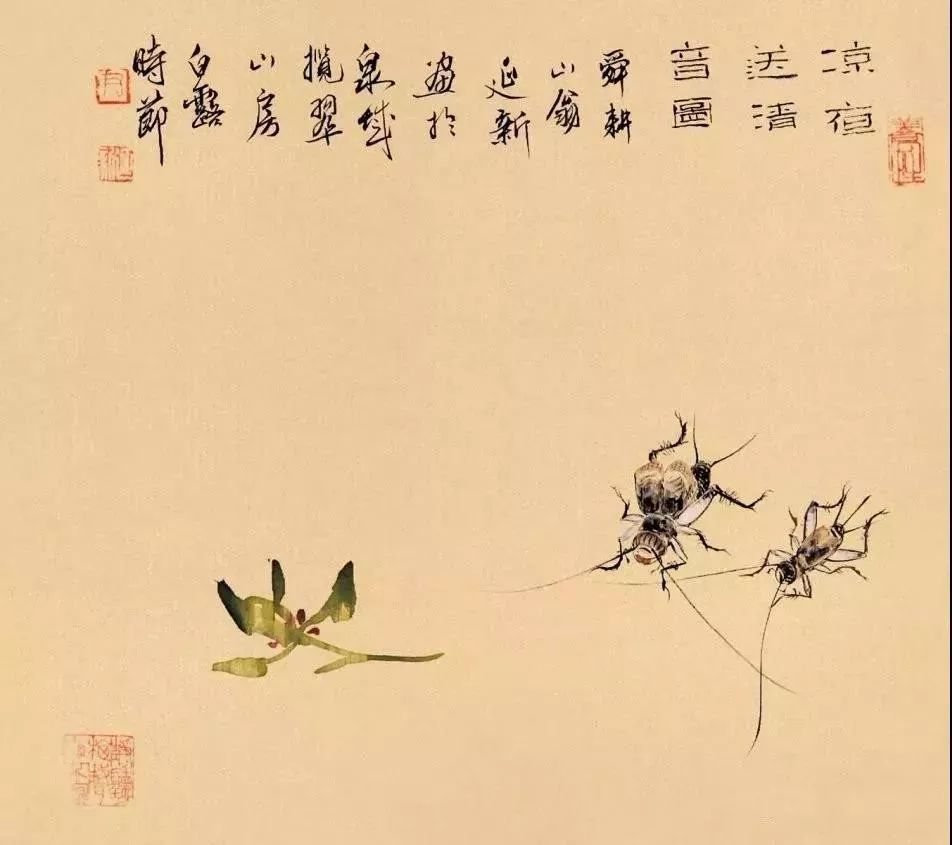 凉夜
送清
音圖
舜耕
山翁
延新
畫於
泉城
攬翠
山房
白露
時節